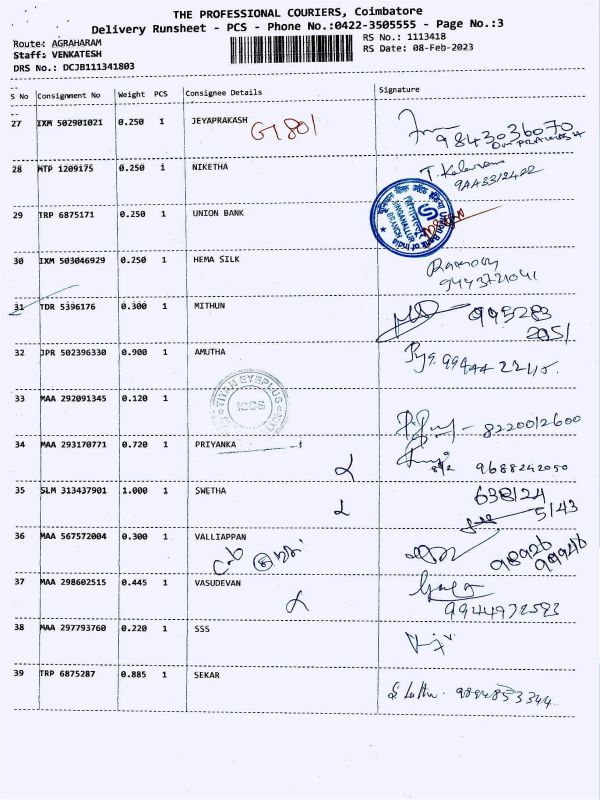 THE PROFESSIONAL COURIERS, Coimbatore
Delivery Runsheet - PCS - Phone No.:0422-3505555 - Page No.:3
Route: AGRAHARAM
RS No.: 1113418
Staff: VENKATESH
RS Date: 08-Feb-2023
DRS No.: DCJB111341803
S No Consignment No Weight PCS Consignee Details Signature
27 IXM 502901021 0.250 1 JEYAPRAKASH 9843036070
28 MTP 1209175 0.250 1 NIKETHA
29 TRP 6875171 0.250 1 UNION BANK
Union Bank of India
BRANCH
30 IXM 503046929 0.250 1 HEMA SILK
31 TDR 5396176 0.300 1 MITHUN 995283
2051
32 JPR 502396330 0.900 1 AMUTHA
TITAN EYEPLUS
33 MAA 292091345 0.120 1 8220012600
34 MAA 293170771 0.720 1 PRIYANKA 9688242050
35 SLM 313437901 1.000 1 SWETHA 638124
5143
36 MAA 567572004 0.300 1 VALLIAPPAN 98926
99946
37 MAA 298602515 0.445 1 VASUDEVAN
9944972593
38 MAA 297793760 0.220 1 SSS
39 TRP 6875287 0.885 1 SEKAR 9894853344